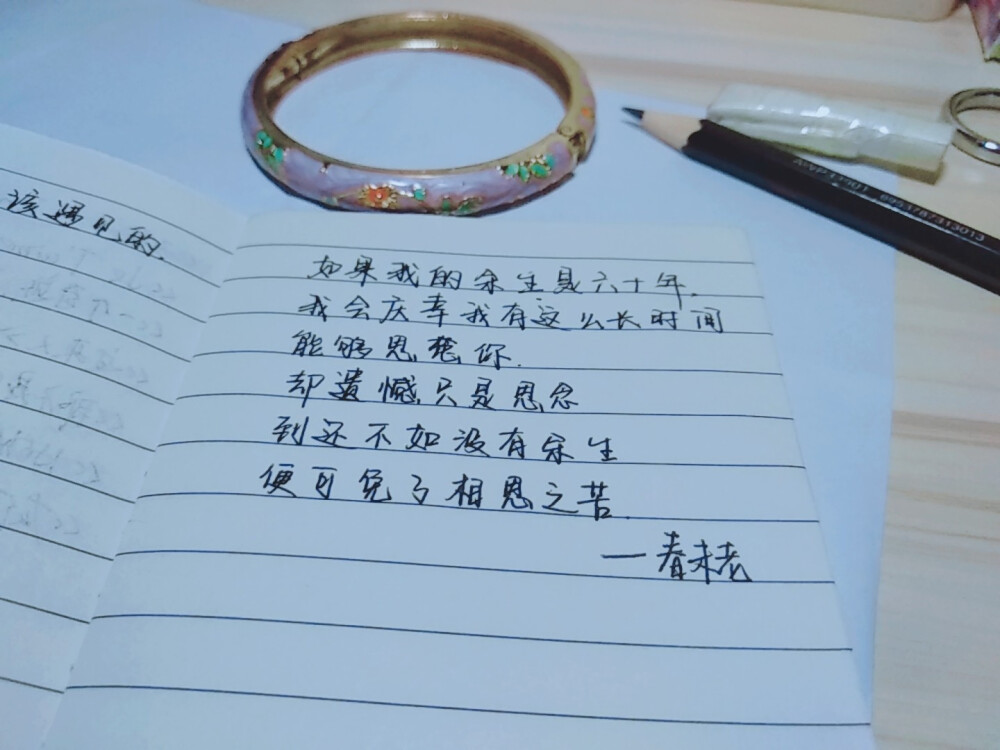 该遇见的.
如果我的余生是六十年.
我会庆幸我有这么长时间
能够思想你.
却遗憾只是思念
到还不如没有余生
便可免了相思之苦.
—春未老
6953787313013